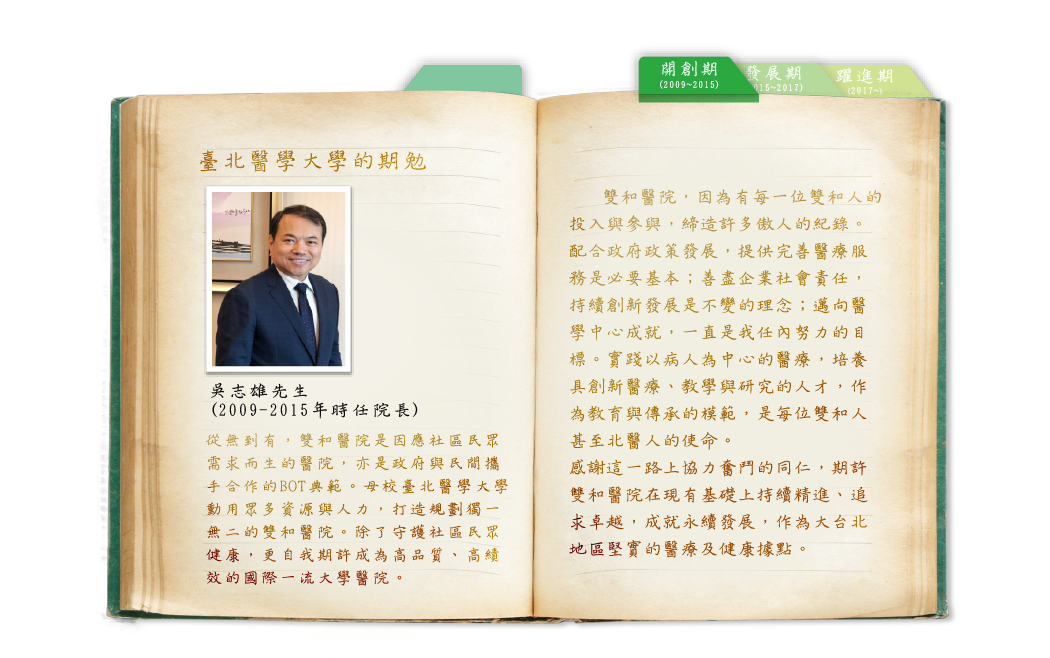 開創期
(2009~2015)
發展期
015~2017)
躍進期
(2017~)
臺北醫學大學的期勉
吳志雄先生
(2009-2015年時任院長)
從無到有，雙和醫院是因應社區民眾
需求而生的醫院，亦是政府與民間攜
手合作的BOT典範。母校臺北醫學大學
動用眾多資源與人力，打造規劃獨一
無二的雙和醫院。除了守護社區民眾
健康，更自我期許成為高品質、高績
效的國際一流大學醫院。
雙和醫院，因為有每一位雙和人的
投入與參與，締造許多傲人的紀錄。
配合政府政策發展，提供完善醫療服
務是必要基本；善盡企業社會責任，
持續創新發展是不變的理念；邁向醫
學中心成就，一直是我任內努力的目
標。實踐以病人為中心的醫療，培養
具創新醫療、教學與研究的人才，作
為教育與傳承的模範，是每位雙和人
甚至北醫人的使命。
感謝這一路上協力奮鬥的同仁，期許
雙和醫院在現有基礎上持續精進、追
求卓越，成就永續發展，作為大台北
地區堅實的醫療及健康據點。